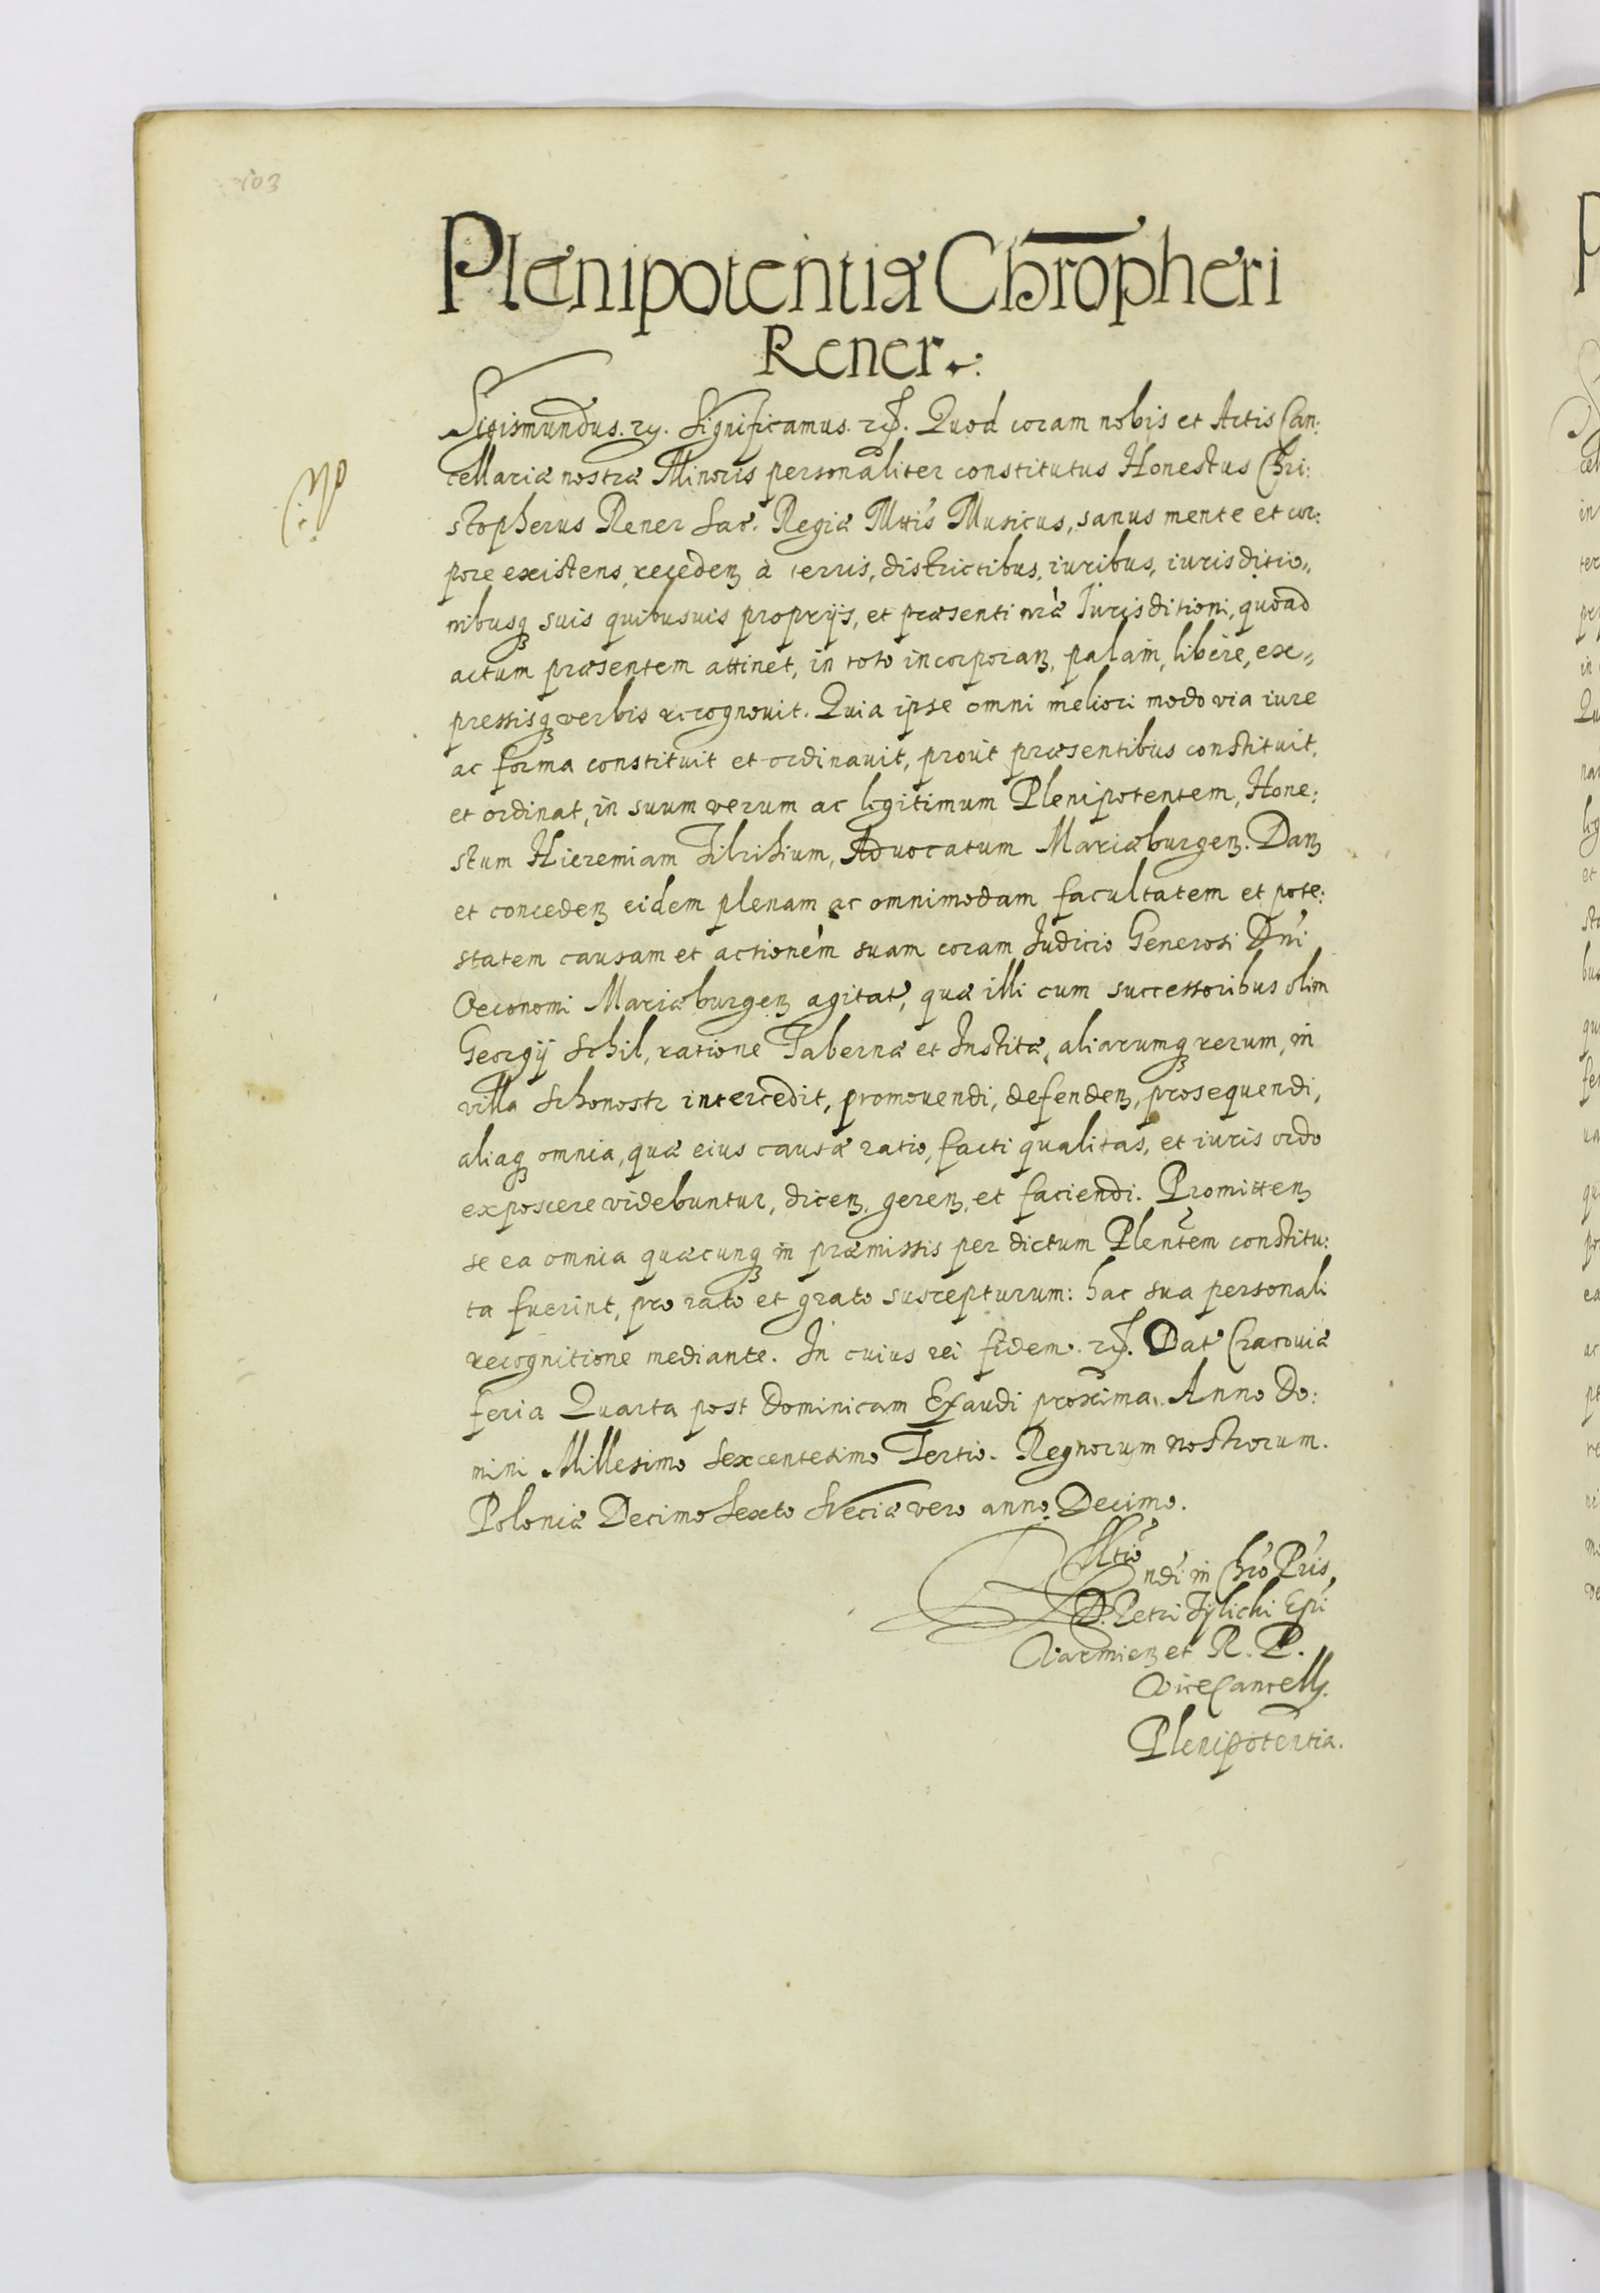 103
Plenipotentia Chropheri
Rener.
Sigismundus. Significamus. Quod coram nobis et Actis Can:
cellariæ nostræ Minoris personaliter constitutus Honestus Chri:
stopherus Rener Sac. Regiæ Mttis Musicus, sanus mente et cor:
pore existens, receden à terris, districtibus, iuribus, iurisditio„
nibusq suis quibusuis proprijs, et præsenti nrà Iurisditioni, quoad
actum præsentem attinet, in toto incorporan, palam, libere, ex„
pressisq verbis recognouit. Quia ipse omni meliori modo via iure
ac forma constituit et ordinauit, prout præsentibus constituit,
et ordinat, in suum verum ac legitimum Plenipotentem, Hone:
stum Hieremiam Advocatum Mariæburgen. Dan
et conceden eidem plenam ac omnimodam facultatem et pote:
statem causam et actionem suam coram Iudicio Generosi Dni
Oeconomi Mariæburgen agitat, quæ illi cum successoribus olim
Georgij Schil, ratione Tabernæ et Institæ, aliarumq rerum, in
villa Schonostr intercedit, promouendi, defenden, prosequendi,
aliaq omnia, quæ eius causæ ratio, facti qualitas, et iuris ordo
exposcere videbuntur, dicen, geren, et faciendi. Promitten
se ea omnia quæcunq in præmissis per dictum Plentem constitu:
ta fuerint, pro rato et grato suscepturum: hac sua personali
recognitione mediante. In cuius rei fidem. Dat Cracouiæ
feria Quarta post Dominicam Exaudi proxima. Anno Do:
mini Millesimo Sexcentesimo Tertio. Regnorum nostrorum.
Poloniæ Decimo Sexto Sveciæ vero anno Decimo.
Rltio
Rndi in Chro Pris,
D. Petri Tylicki Epi
Varmien et R. P.
ViceCancell.
Plenipotentia.